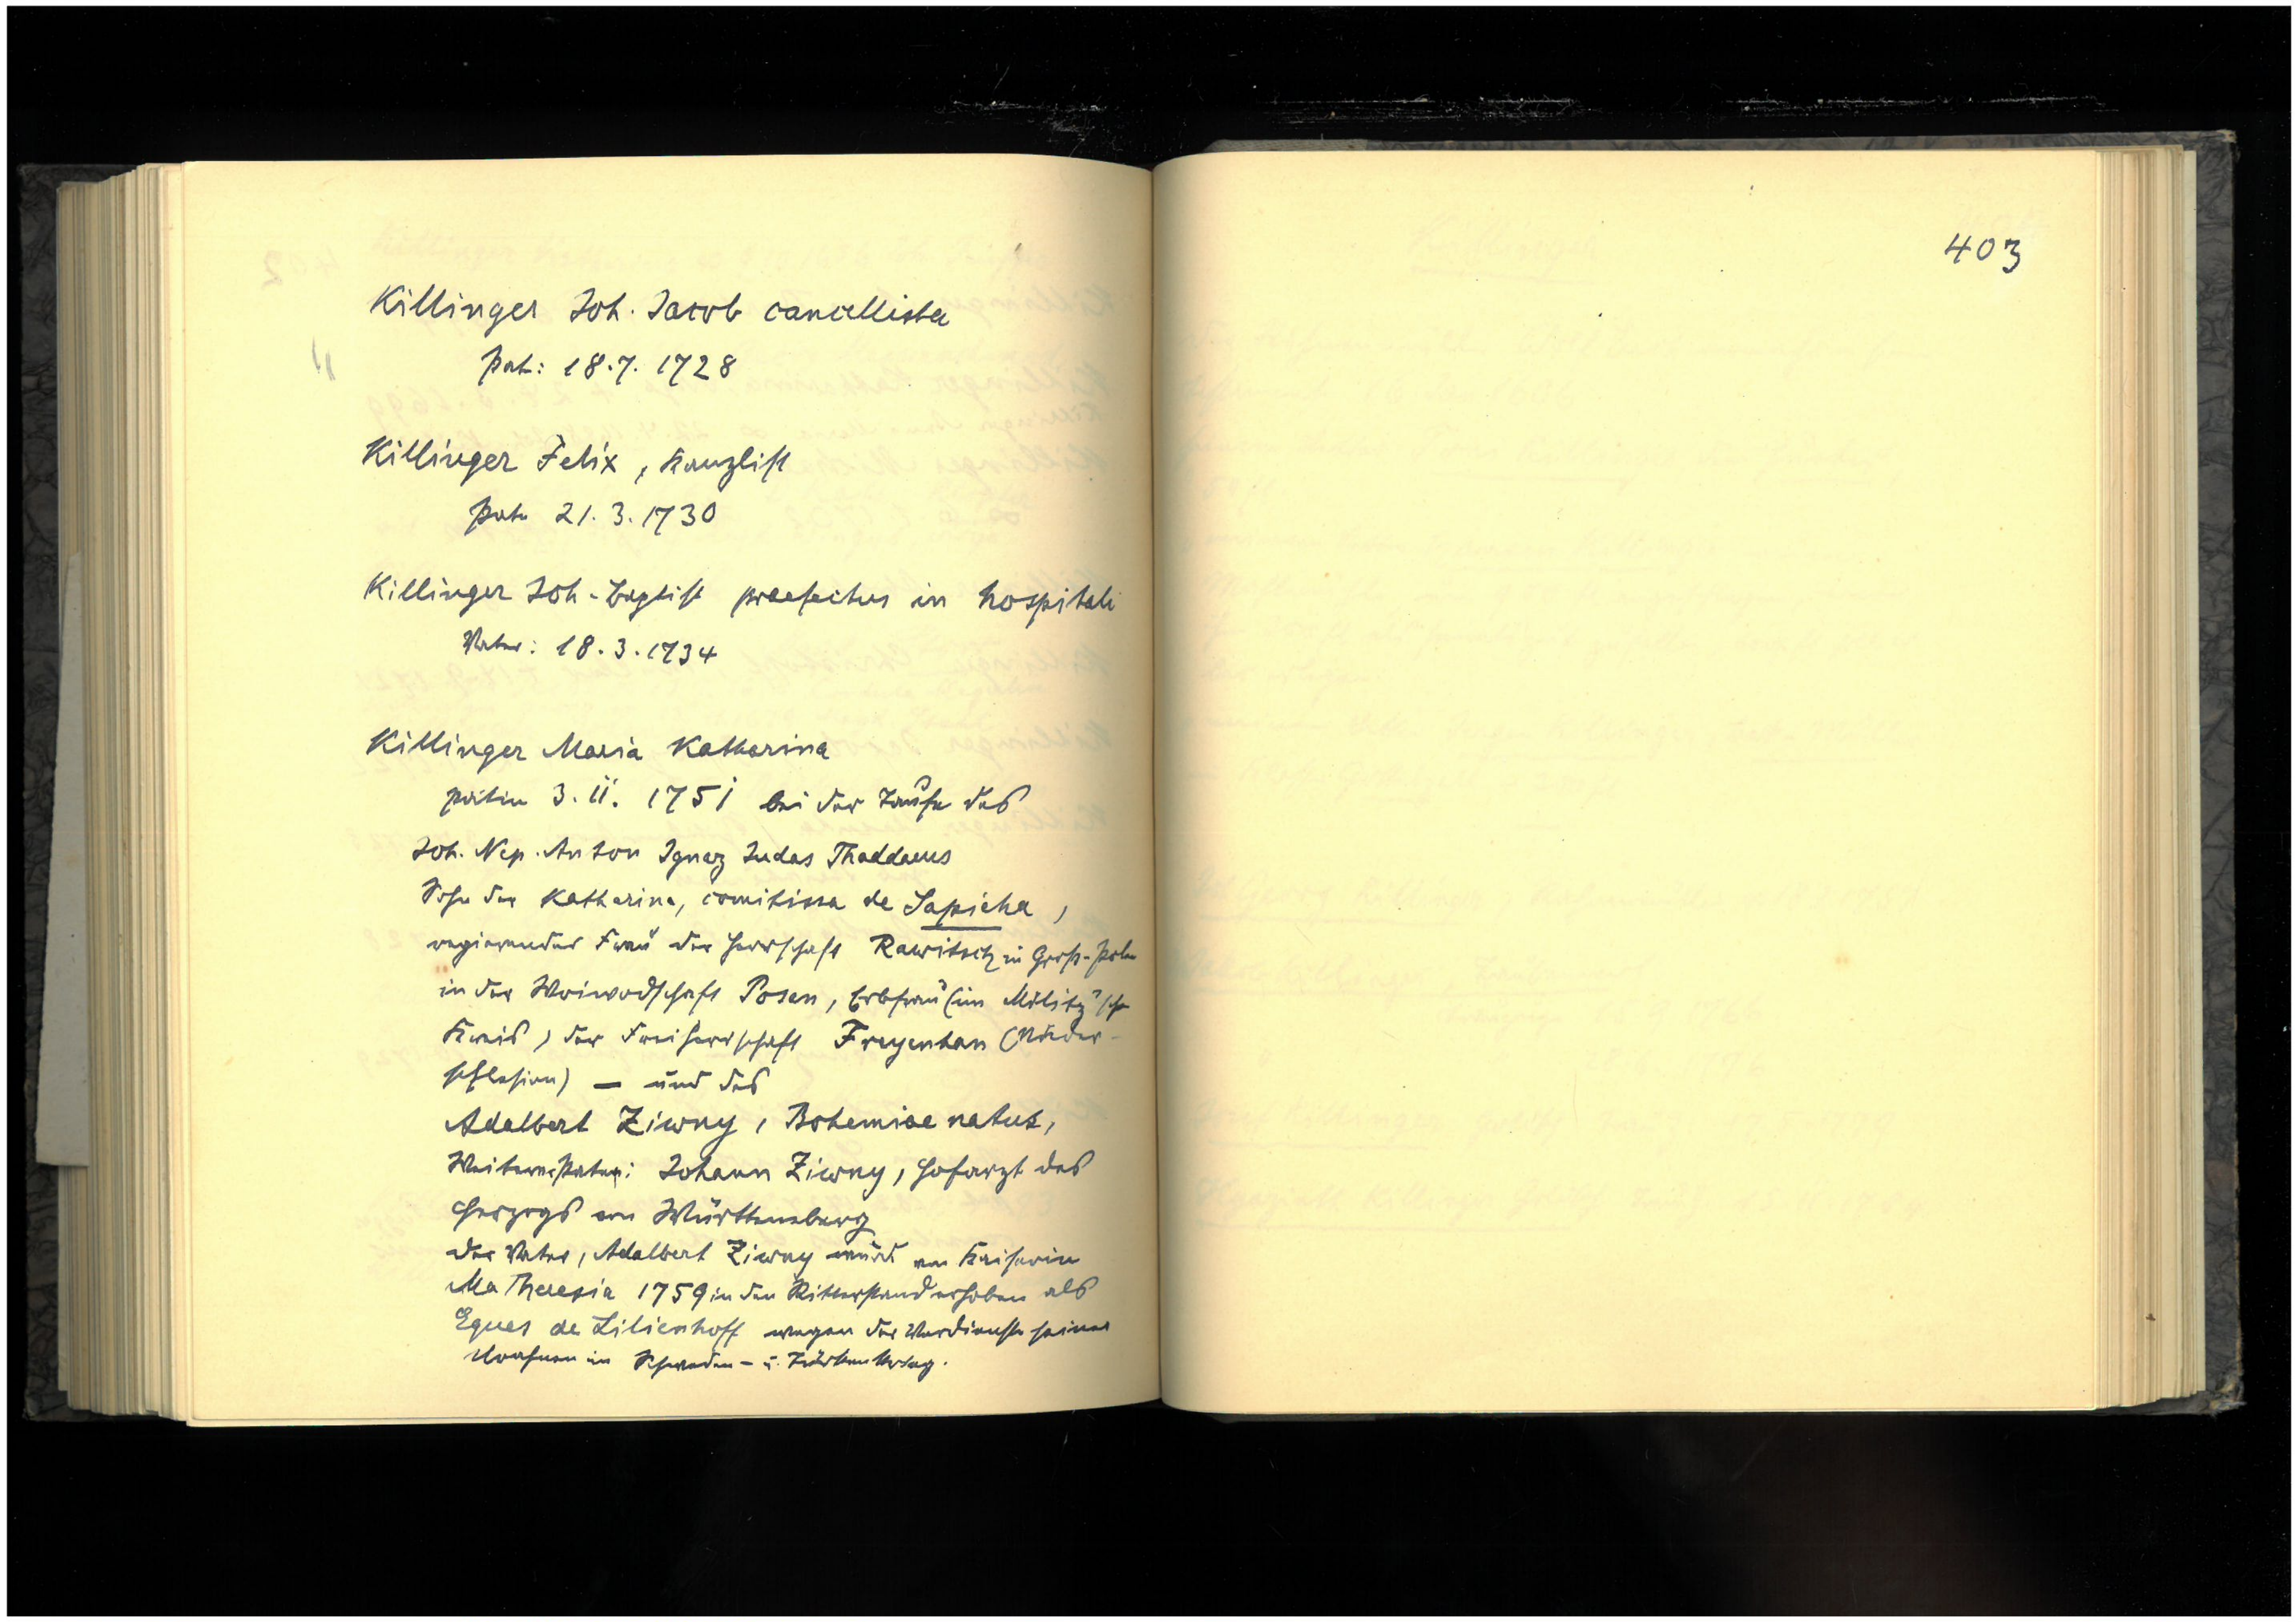 Killinger Joh. Jacob cancellista
Pat: 18.7. 1728
Killinger Felix, Kanzlist
Pate 21.3.1730
Killinger Joh-Baptist praefectus in hospitali
Vater: 18.3.1734
Killinger Maria Katharina
patin 3. 11. 1751 bei der Taufe des
Joh. Nep. Anton Ignaz Judas Thaddaeus
Sohn der Katharina, comitissa de Sapieha,
regierender Frau der Herrschaft Rawitsch in Groß-Polen
in der Woiwodschaft Posen, Erbfrau (im Militz'sch
Kreis) der Freiherrschaft Freyenhan (Nieder-
schlesien) — und des
Adalbert Ziwny, Bohemiae natus,
Weiterer Pate: Johann Ziwny, Hofarzt des
Herzogs von Württemberg
Der Vater, Adalbert Ziwny wurde von Kaiserin
Ma Theresia 1759 in den Ritterstand erhoben als
Eques de Lilienhoff wegen der Verdienste seiner
Vorfahren im Schweden- u. Türkenkrieg.
403